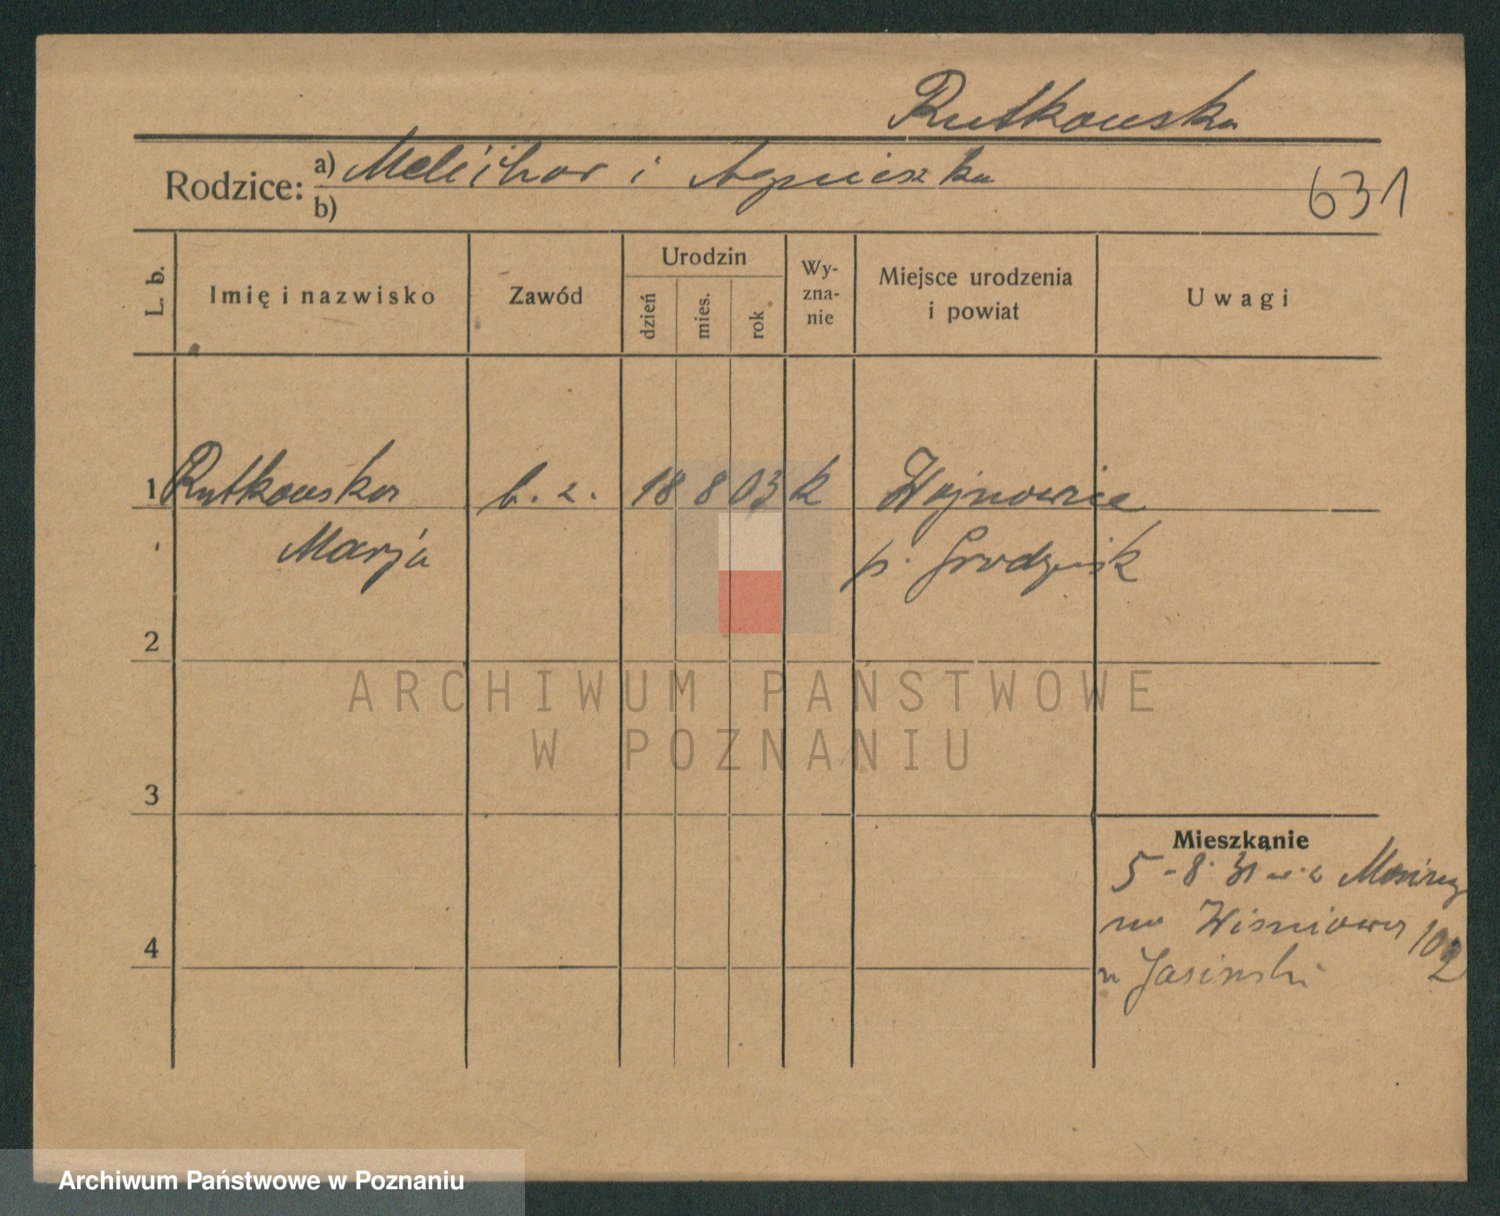 Rutkowska
Rodzice: a) Melchior i Agnieszka
b)
631
L. b.
Imię i nazwisko
Zawód
Urodzin
dzień
mies.
rok
Wy-
zna-
nie
Miejsce urodzenia
i powiat
Uwagi
1 Rutkowska b. z. 18 8 03 k Wojnowice
Marja p. Grodzisk
2
ARCHIWUM PAŃSTWOWE
W POZNANIU
3
Mieszkanie
5-8. 31 z
na Wiśniowa 102
u Jasinski
4
Archiwum Państwowe w Poznaniu